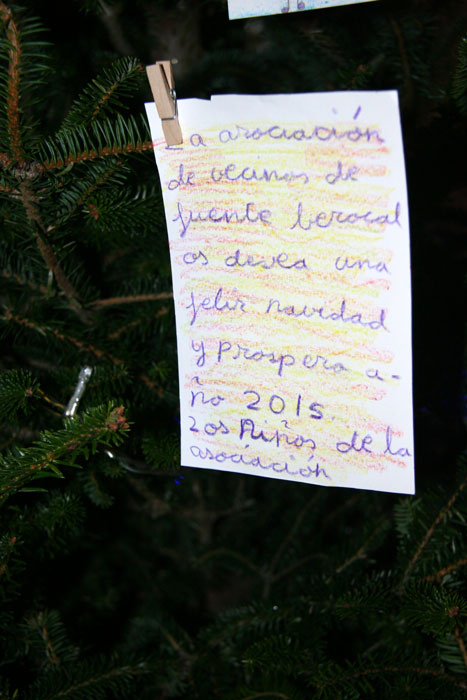 La asociación
de vecinos de
fuente berocal
os desea una
feliz navidad
y prospero a-
ño 2015...
Los Niños de la
asociación